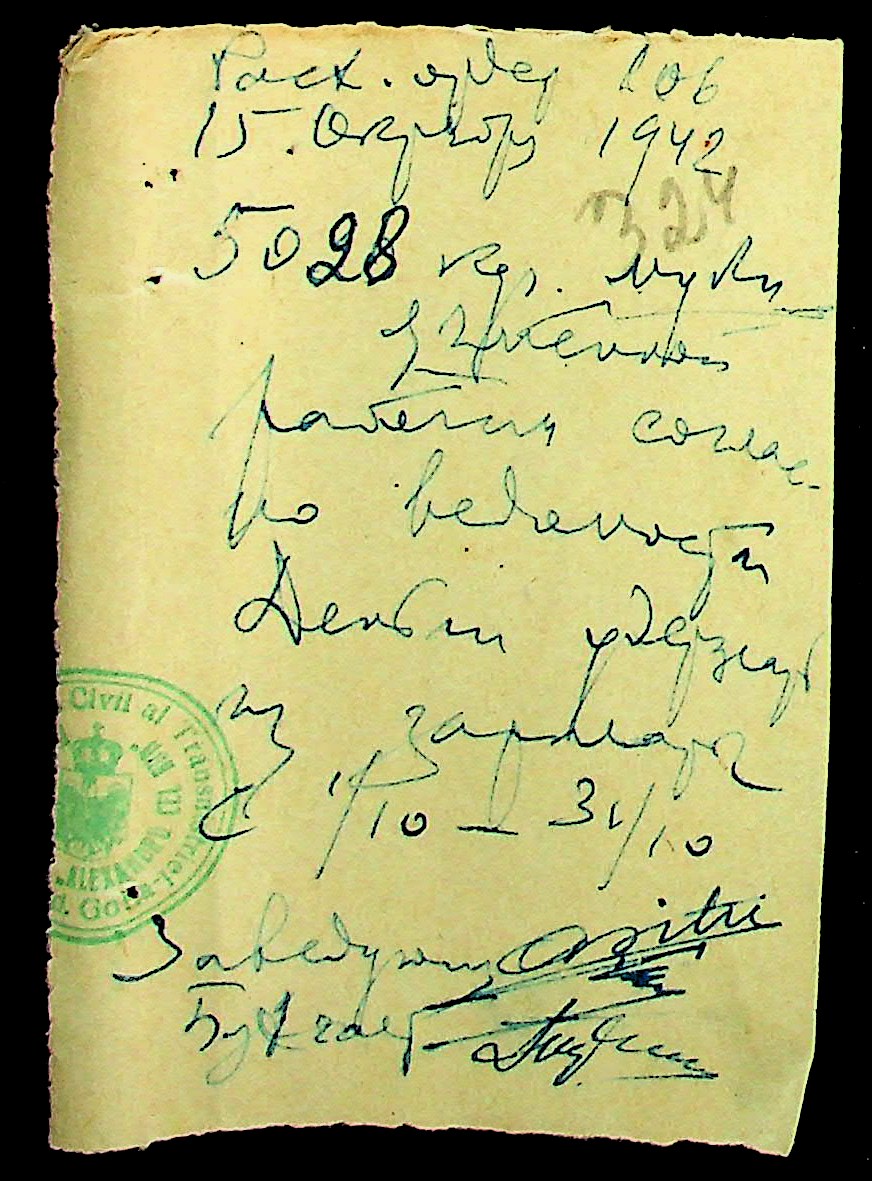 Расх. ордер 206
15. Октября 1942
324
5028 кгр. муки
ячменной
рабочим соглас-
но ведомости
Деньги удержать
из зарплаты
с 1/10 – 31/10
Заведующий
Бухгалт
Civil al Transnistriei
ALEXANDRU
d. Golta